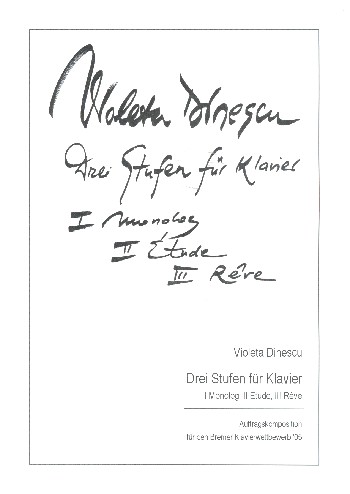 Violeta Dinescu
Drei Stufen für Klavier
I Monolog
II Étude
III Rêve
Violeta Dinescu
Drei Stufen für Klavier
I Monolog, II Etude, III Rêve
Auftragskomposition
für den Bremer Klavierwettbewerb '05